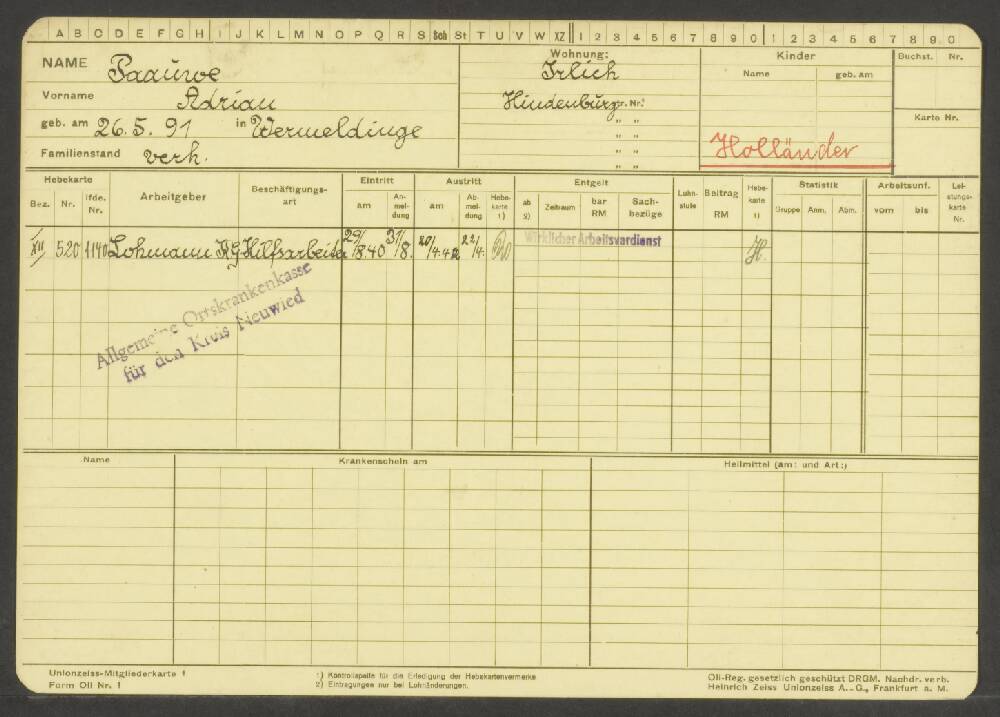 A B C D E F G H I J K L M N O P Q R S Sch St T U V W XZ 1 2 3 4 5 6 7 8 9 0 1 2 3 4 5 6 7 8 9 0
NAME Paauwe
Vorname Adrian
geb. am 26. 5. 91 in Wermeldinge
Familienstand verh.
Wohnung:
Irlich
Hindenburgstr. Nr.
" "
" "
" "
" "
Kinder
Name geb. am
Holländer
Buchst. Nr.
Karte Nr.
Hebekarte
Bez. Nr. lfde. Nr.
Arbeitgeber
Beschäftigungs-
art
Eintritt
am An-
mel-
dung
Austritt
am Ab-
mel-
dung Hebe-
karte
1)
Entgelt
ab
2) Zeitraum bar
RM Sach-
bezüge
Lohn-
stufe
Beitrag
RM
Hebe-
karte
1)
Statistik
Gruppe Anm. Abm.
Arbeitsunf.
vom bis
Lei-
stungs-
karte
Nr.
XII 520 1140 Lohmann KG Hilfsarbeiter 29/8.40 31/8. 20/4.42 22/4.
Wirklicher Arbeitsverdienst
Allgemeine Ortskrankenkasse
für den Kreis Neuwied
Name Krankenschein am Heilmittel (am: und Art:)
Unionzeiss-Mitgliederkarte 1
Form Oli Nr. 1
1) Kontrollspalte für die Erledigung der Hebekartenvermerke
2) Eintragungen nur bei Lohnänderungen.
Oli-Reg. gesetzlich geschützt DRGM. Nachdr. verb.
Heinrich Zeiss Unionzeiss A.-G., Frankfurt a. M.